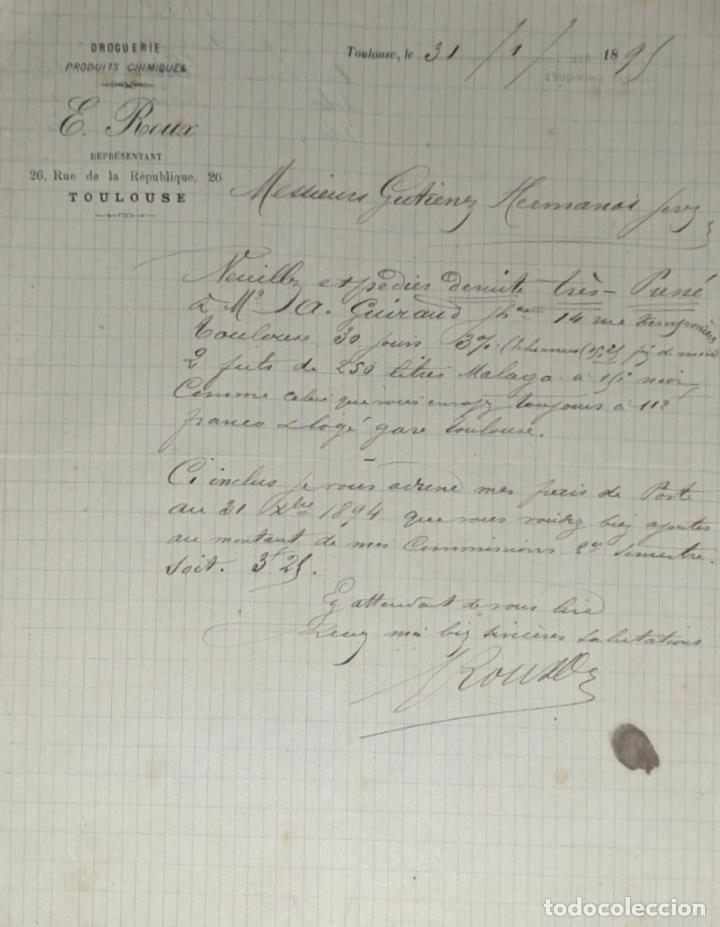 DROGUERIE
PRODUITS CHIMIQUES
E. Roux
REPRÉSENTANT
26, Rue de la République, 26
TOULOUSE
Toulouse, le 31 / 1 / 1895
Messieurs Gutierrez Hermanos
Veuillez expédier de suite très-Pressé
à Mr A. Guiraud 14 rue
Toulouse 30 jours 3% fin de mois
2 futs de 250 litres Malaga à noir
Comme celui que vous envoyez toujours à 112
franco & logé gare Toulouse.
Ci inclus je vous adresse mes frais de Poste
au 31 Xbre 1894 que vous voudrez bien ajouter
au montant de mes Commissions 2e semestre.
Soit. 3f 25.
En attendant de vous lire
Recevez mes bien sincères salutations
Roux
todocoleccion
todocoleccion.net